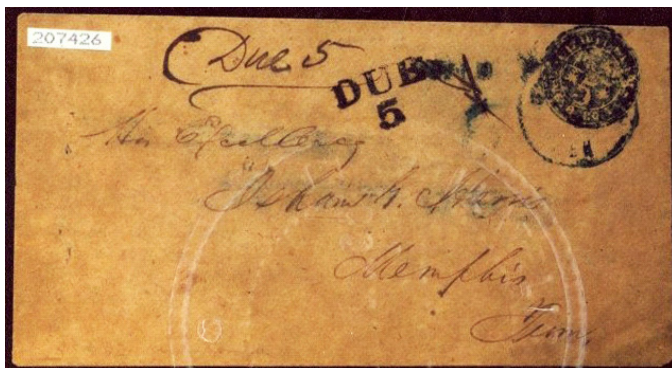 207426
Due 5
DUE
5
His Excellency
Isham G. Harris
Memphis
Tenn.